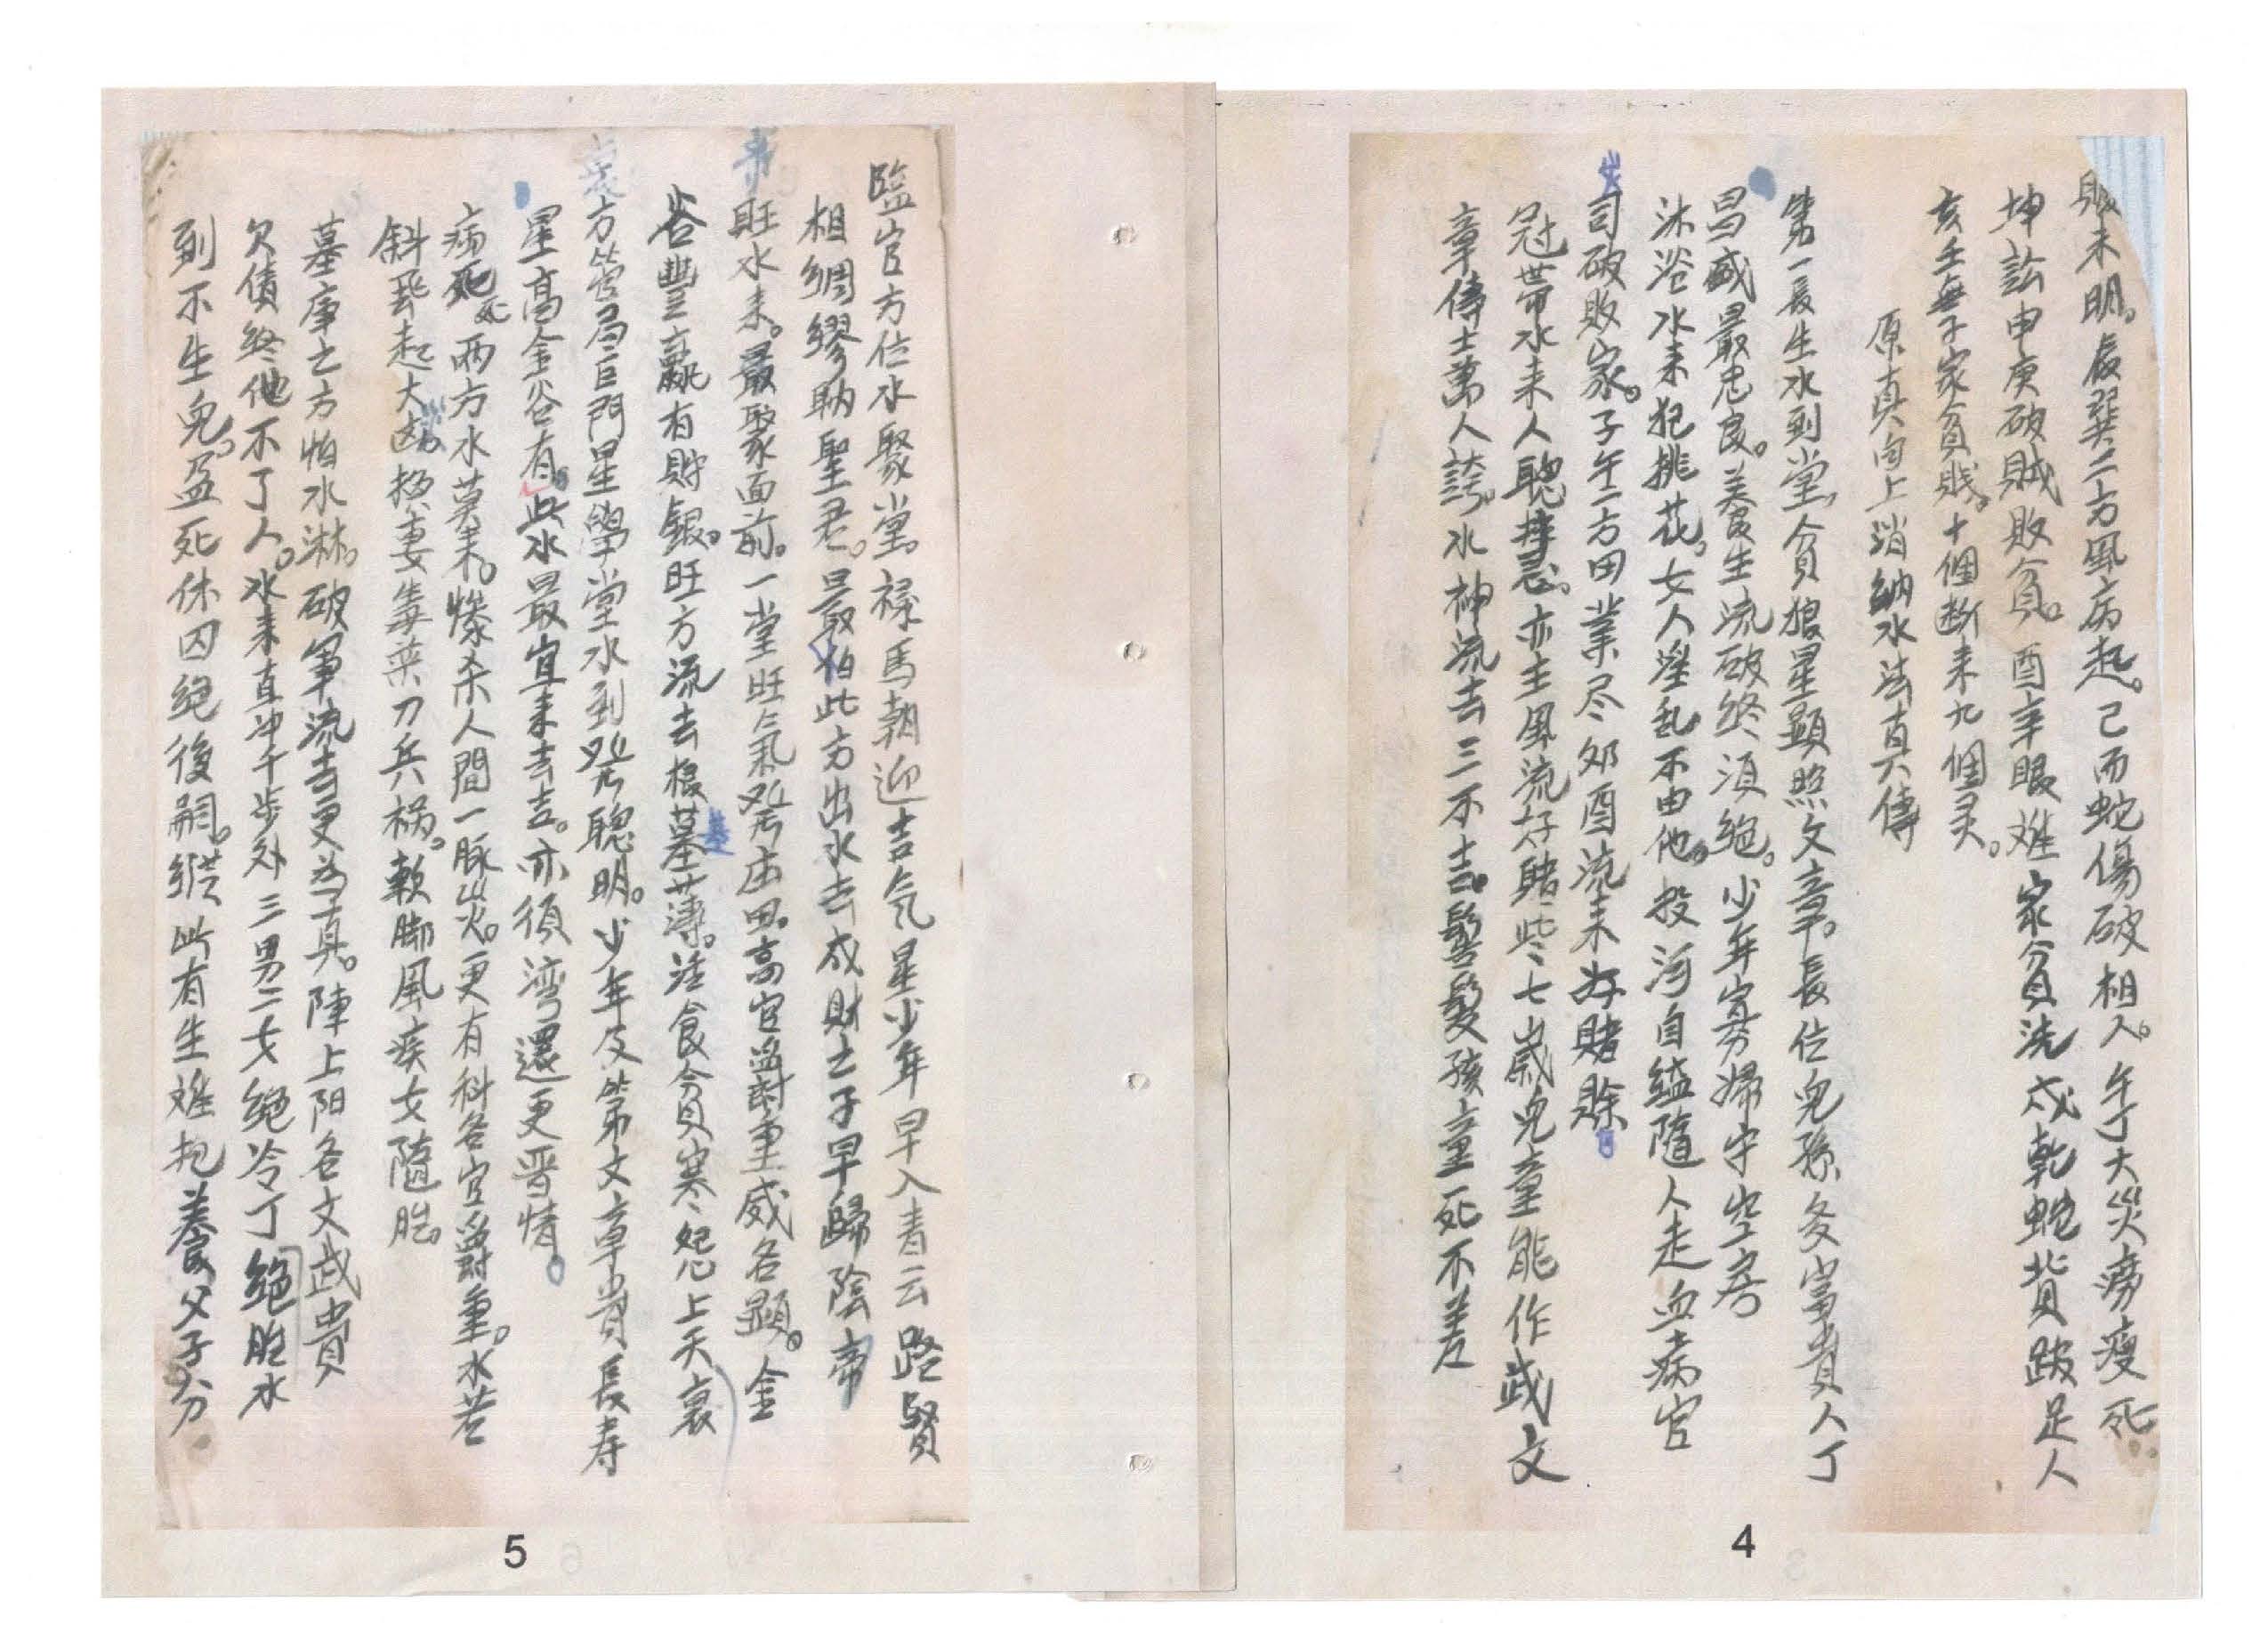 眼未明。辰巽二方風病起。己丙蛇傷破相人。午丁大災癆瘦死
坤訟申庚破賊敗貧。酉辛眼难家貧洗戌乾蛇背跛足人
亥壬無子家貧賤。十個断来九個灵。
原真向上消納水法真傳
第一長生水到堂。貪狼星顕照文章。長位兒孫多富貴人丁
昌盛最忠良。養生流破終須絶。少年寡婦守空房
沐浴水来犯桃花。女人淫乱不由他。投河自縊隨人走血病官
災司破敗家。子午二方田業尽卯酉流来好賭賒
冠帶水来人聰㨗。亦主風流好賭些七歲兒童能作武文
章傳士萬人誇。水神流去三不吉。髫髮孩童死不差
4
臨官方位水聚堂。祿馬朝迎吉氣星少年早入青云路賢
相綢繆助聖君。最怕此方出水去成財之子早歸陰帝
旺水来。最聚面前。一堂旺氣發庄田。高官爵重威名顕。金
谷豐贏有財銀。旺方流去根基薄。法食貪寒怨上天衰
方管局巨門星學堂水到發聰明。少年及第文章貴長寿
星高金谷有。此水最宜来去吉。亦須湾還更晋情。
病死两方水莫来。慘杀人間一脉災。更有科名官爵重。水若
斜飛起大凶換妻毒薬刀兵禍。軟脚風疾女隨胎。
墓庫之方怕水淋。破軍流去更为真。陣上阳名文武貴
欠債終他不了人。水来直冲千步外三男二女絶冷丁絶胎水
到不生兒。孟死休囚絶後嗣。縱此有生难抱養成父子分
5